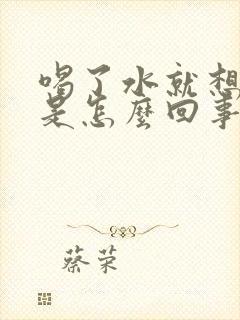 喝了水就想
是怎麼回事
蔡荣